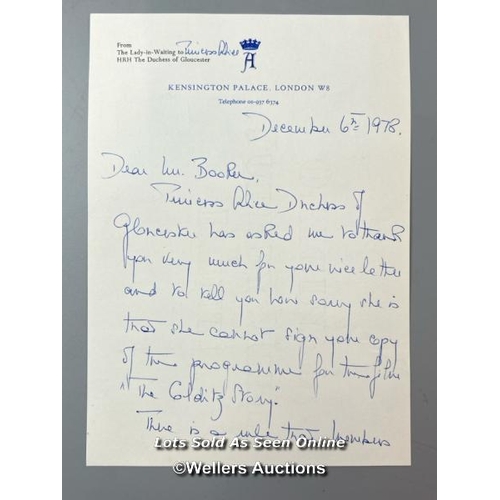 From
The Lady-in-Waiting to Princess Alice
HRH The Duchess of Gloucester
A
KENSINGTON PALACE. LONDON W8
Telephone 01-937 6374
December 6th 1978.
Dear Mr. Booker,
Princess Alice Duchess of
Gloucester has asked me to thank
you very much for your nice letter
and to tell you how sorry she is
that she cannot sign your copy
of the programme for the film
"The Colditz Story".
There is a rule that members
Lots Sold As Seen Online
©Wellers Auctions